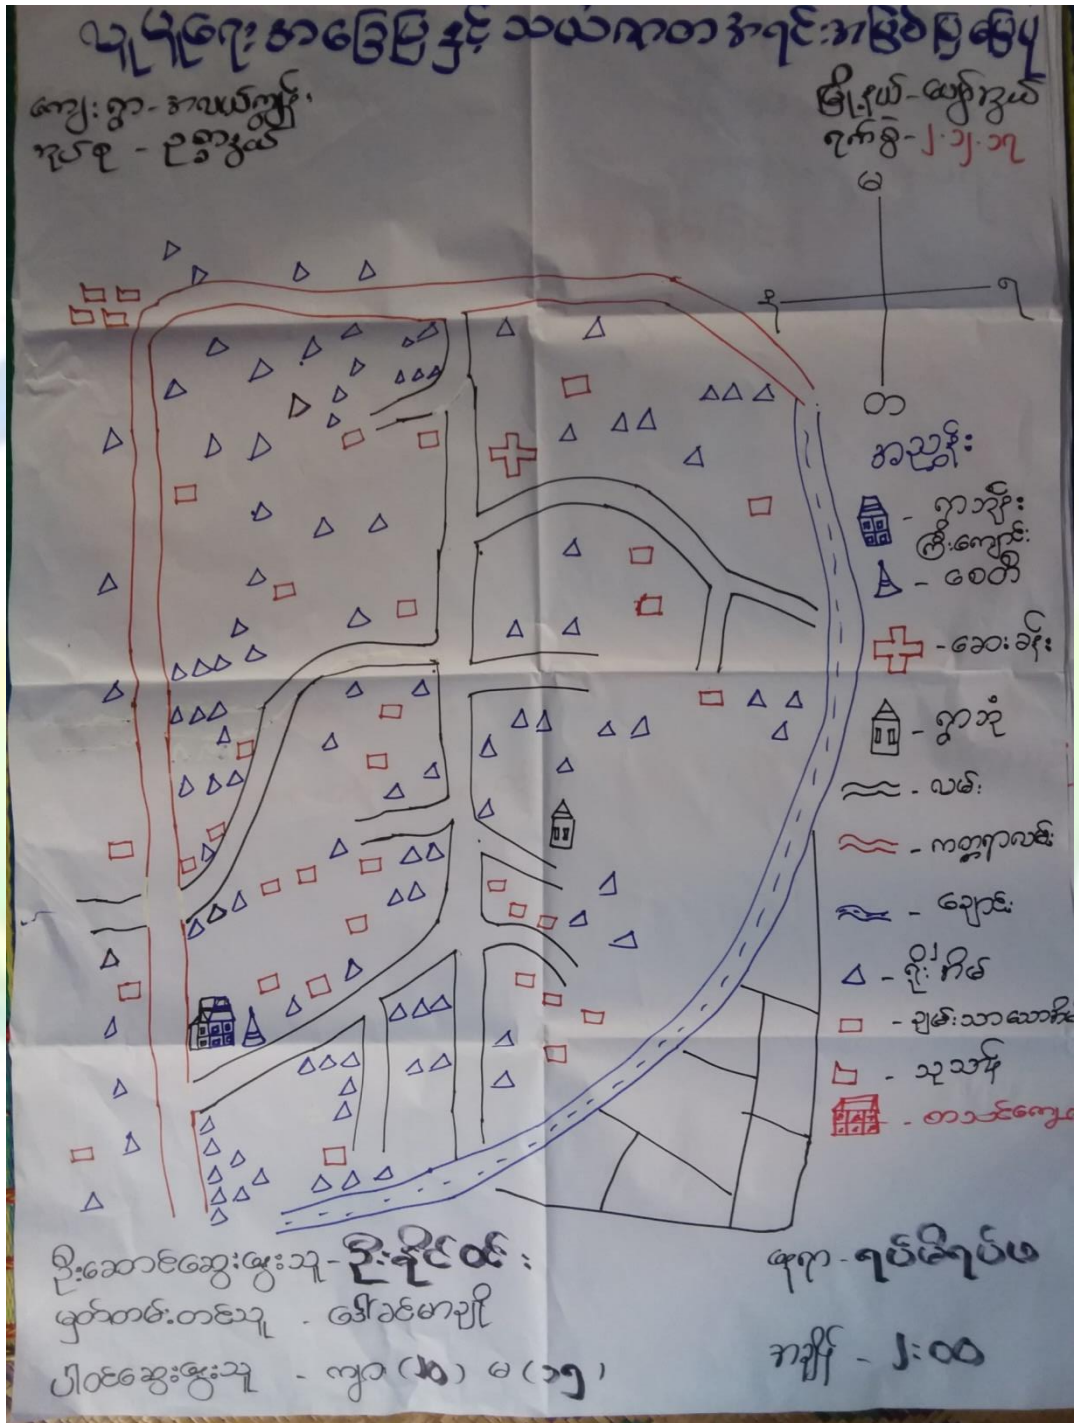 လူမှုရေးအခြေပြနှင့် သယံဇာတ အရင်းအမြစ်ပြမြေပုံ
ကျေးရွာ - အလယ်ကျွန်း
အုပ်စု -
မြို့နယ် - ဖျာပွယ်
ရက်စွဲ - ၂.၁၂.၁၇
မ
န
ရ
တ
အညွှန်း
- ရွာဘုန်းကြီးကျောင်း
- စေတီ
- ဆေးခန်း
- ရွာဘုံ
- လမ်း
- ကတ္တရာလမ်း
- ချောင်း
- ရိုးအိမ်
- ချမ်းသာသောအိမ်
- သုသာန်
- စာသင်ကျောင်း
ဦးဆောင်ဆွေးနွေးသူ - ဦးနိုင်ဝင်း
မှတ်တမ်းတင်သူ - ဒေါ်ခင်မာချို
ပါဝင်ဆွေးနွေးသူ - ကျား (၂၀) မ (၁၅)
နေရာ - ရပ်မိရပ်ဖ
အချိန် - ၂:၀၀